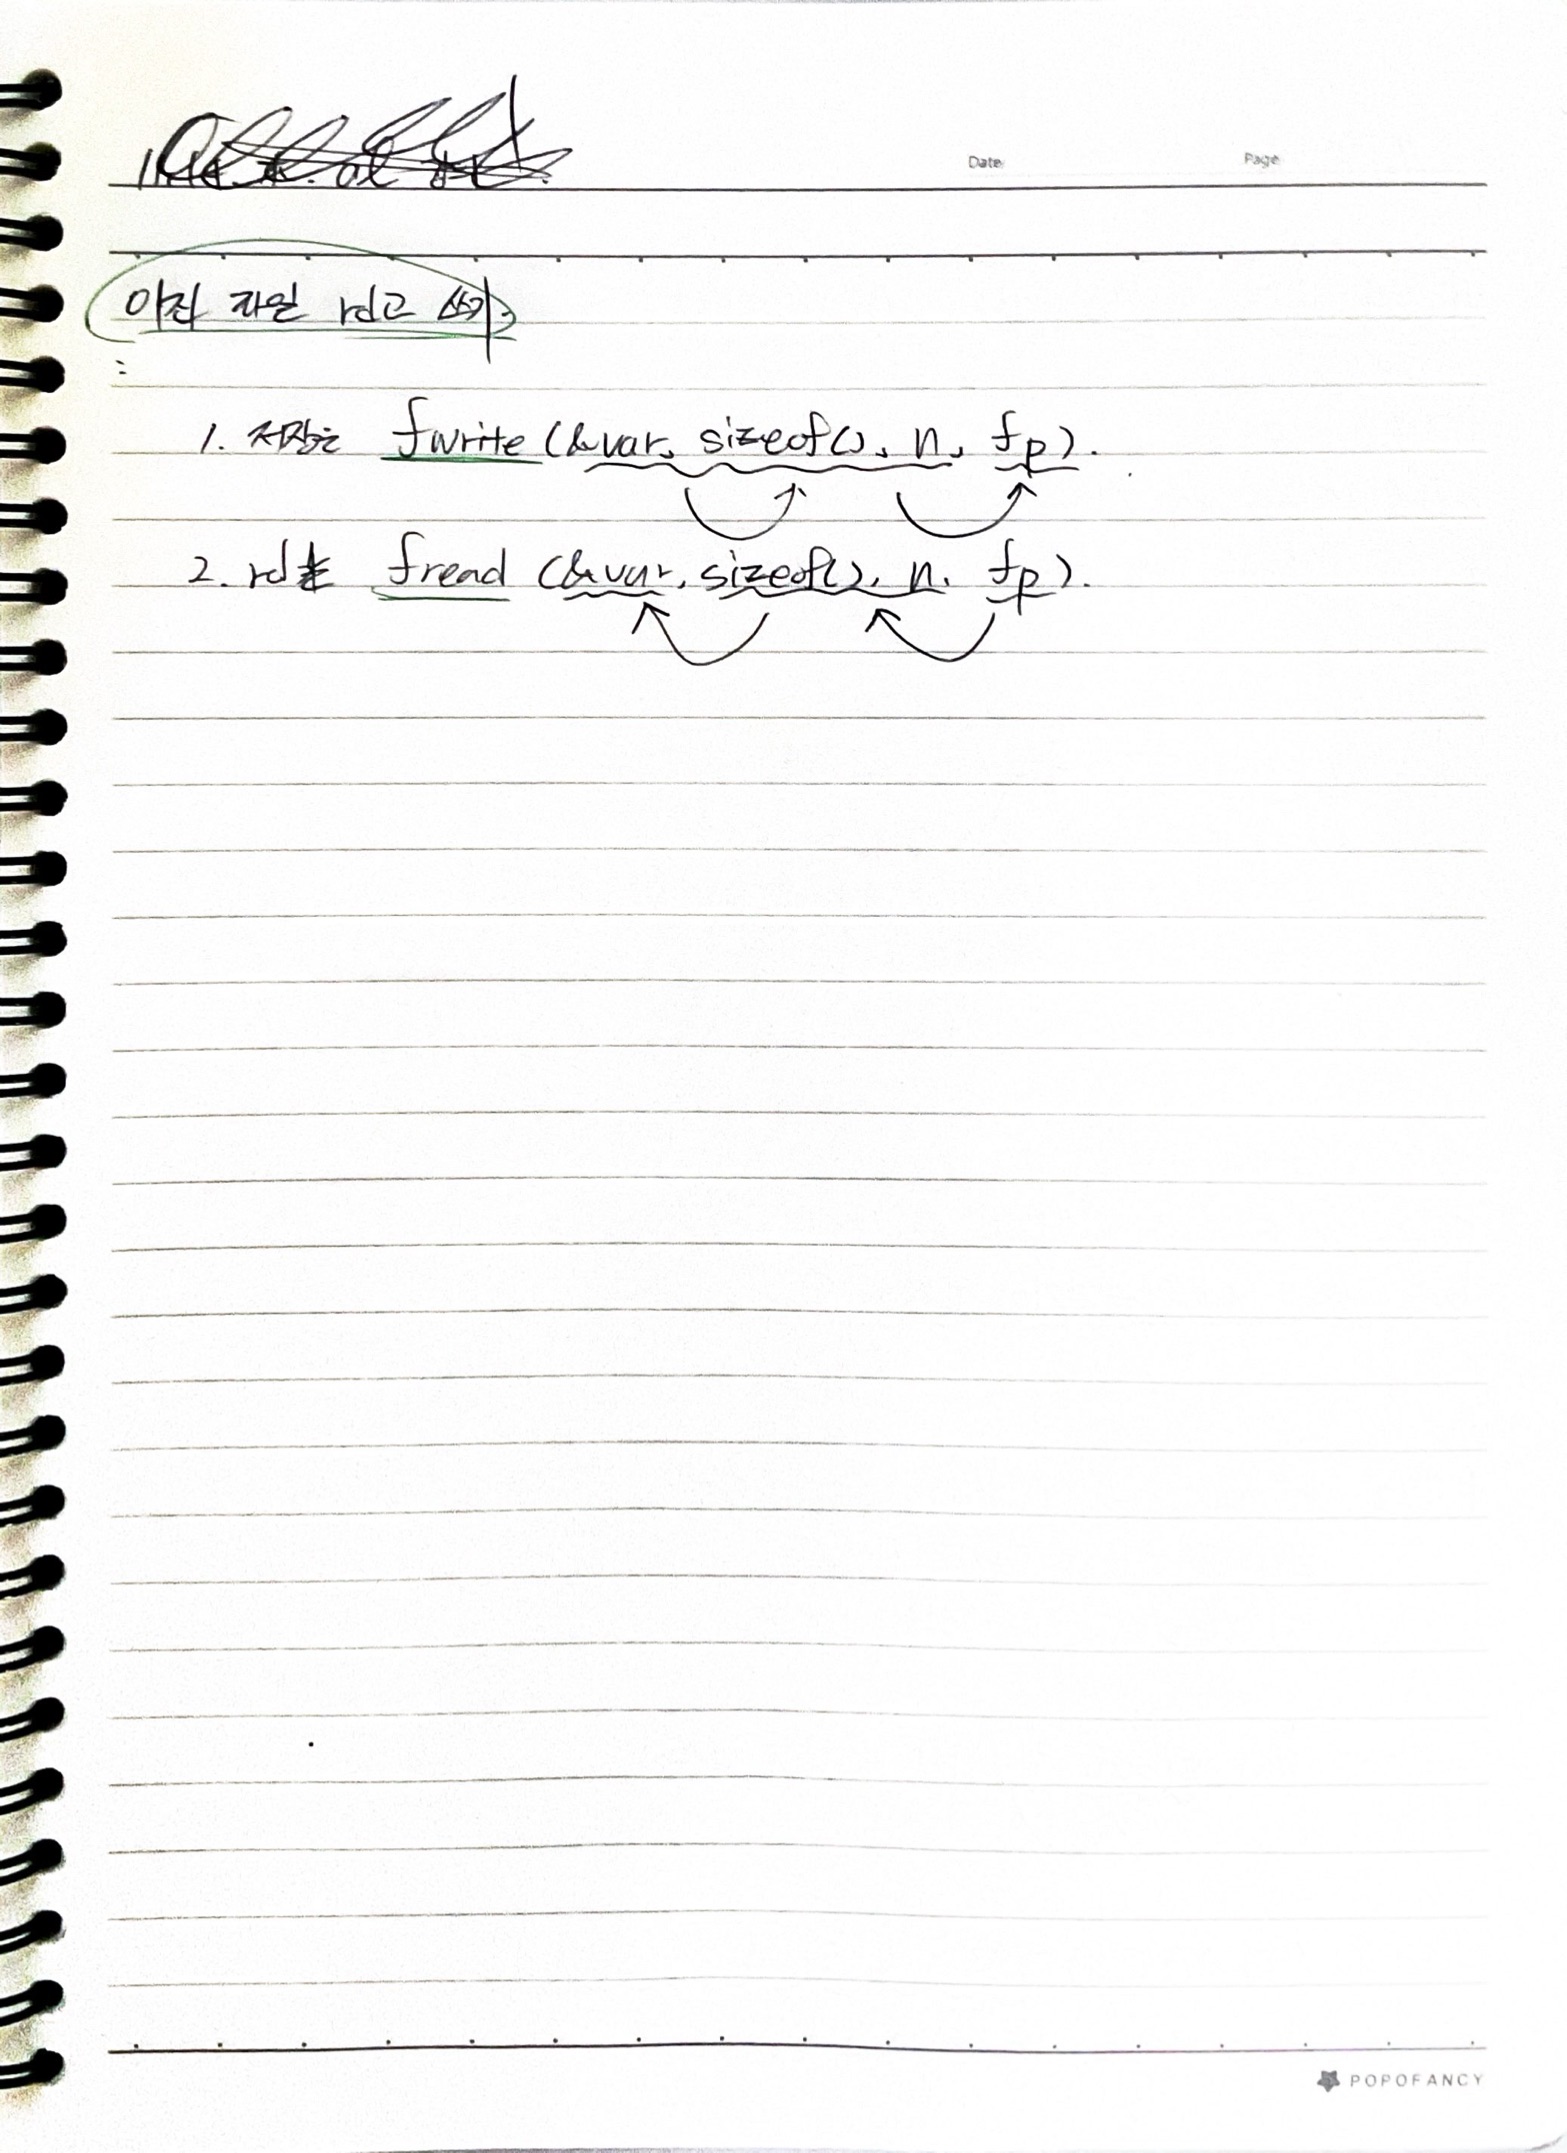 Date Page
이진 파일 rd고 쓰기
:
1. 저장은 fwrite (&var, sizeof(), n, fp).
2. rd는 fread (&var, sizeof(), n, fp).
POPOFANCY